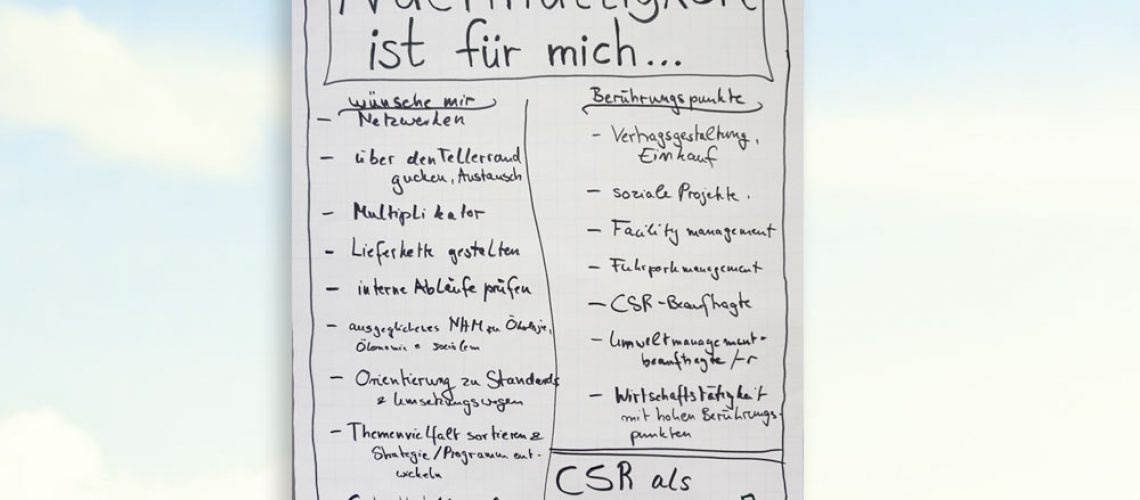 Nachhaltigkeit
ist für mich...
wünsche mir
- Netzwerken
- über den Tellerrand
gucken, Austausch
- Multiplikator
- Lieferkette gestalten
- interne Abläufe prüfen
- ausgeglichenes NHM zu Ökologie,
Ökonomie & sozialem
- Orientierung zu Standards
& Umsetzungswegen
- Themenvielfalt sortieren &
Strategie/Programm ent-
wickeln
Berührungspunkte
- Vertragsgestaltung,
Einkauf
- soziale Projekte.
- Facility management
- Fuhrparkmanagement
- CSR-Beauftragte
- Umweltmanagement-
beauftragte/-r
- Wirtschaftstätigkeit
mit hohen Berührungs-
punkten
CSR als